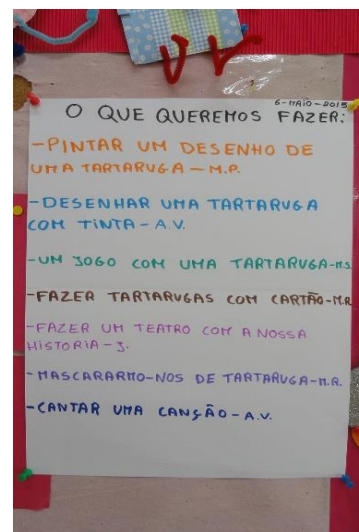 6-MAIO-2015
O QUE QUEREMOS FAZER:
-PINTAR UM DESENHO DE
UMA TARTARUGA - M.P.
-DESENHAR UMA TARTARUGA
COM TINTA - A.V.
-UM JOGO COM UMA TARTARUGA-M.S.
-FAZER TARTARUGAS COM CARTÃO-M.R
-FAZER UM TEATRO COM A NOSSA
HISTORIA - J.
-MASCARARMO-NOS DE TARTARUGA-M.R.
-CANTAR UMA CANÇÃO - A.V.